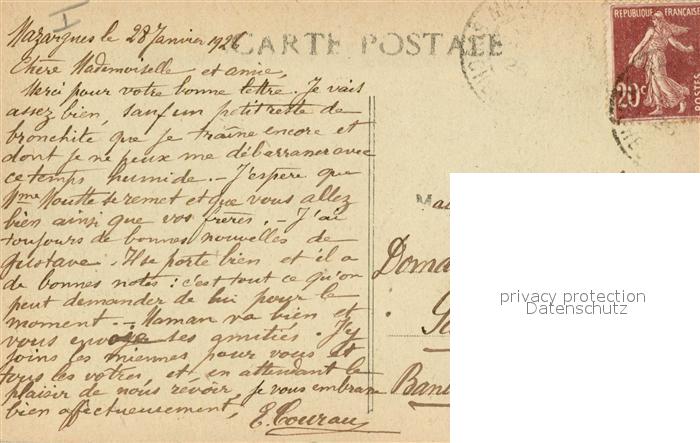 Mazargues le 28 Janvier 192
CARTE POSTALE
REPUBLIQUE FRANÇAISE
20c
POSTES
Chère Mademoiselle et amie,
Merci pour votre bonne lettre. Je vais
assez bien, sauf un petit reste de
bronchite que je traîne encore et
dont je ne peux me débarrasser avec
ce temps humide. - J'espère que
Mme Moutte se remet et que vous allez
bien ainsi que vos frères. - J'ai
toujours de bonnes nouvelles de
Gustave. Il se porte bien et il a
de bonnes notes : c'est tout ce qu'on
peut demander de lui pour le
moment. - Maman va bien et
vous envoie ses amitiés. J'y
joins les miennes pour vous et
tous les vôtres et en attendant le
plaisir de nous revoir, je vous embrasse
bien affectueusement,
Ma
Doma
Ban
privacy protection
Datenschutz